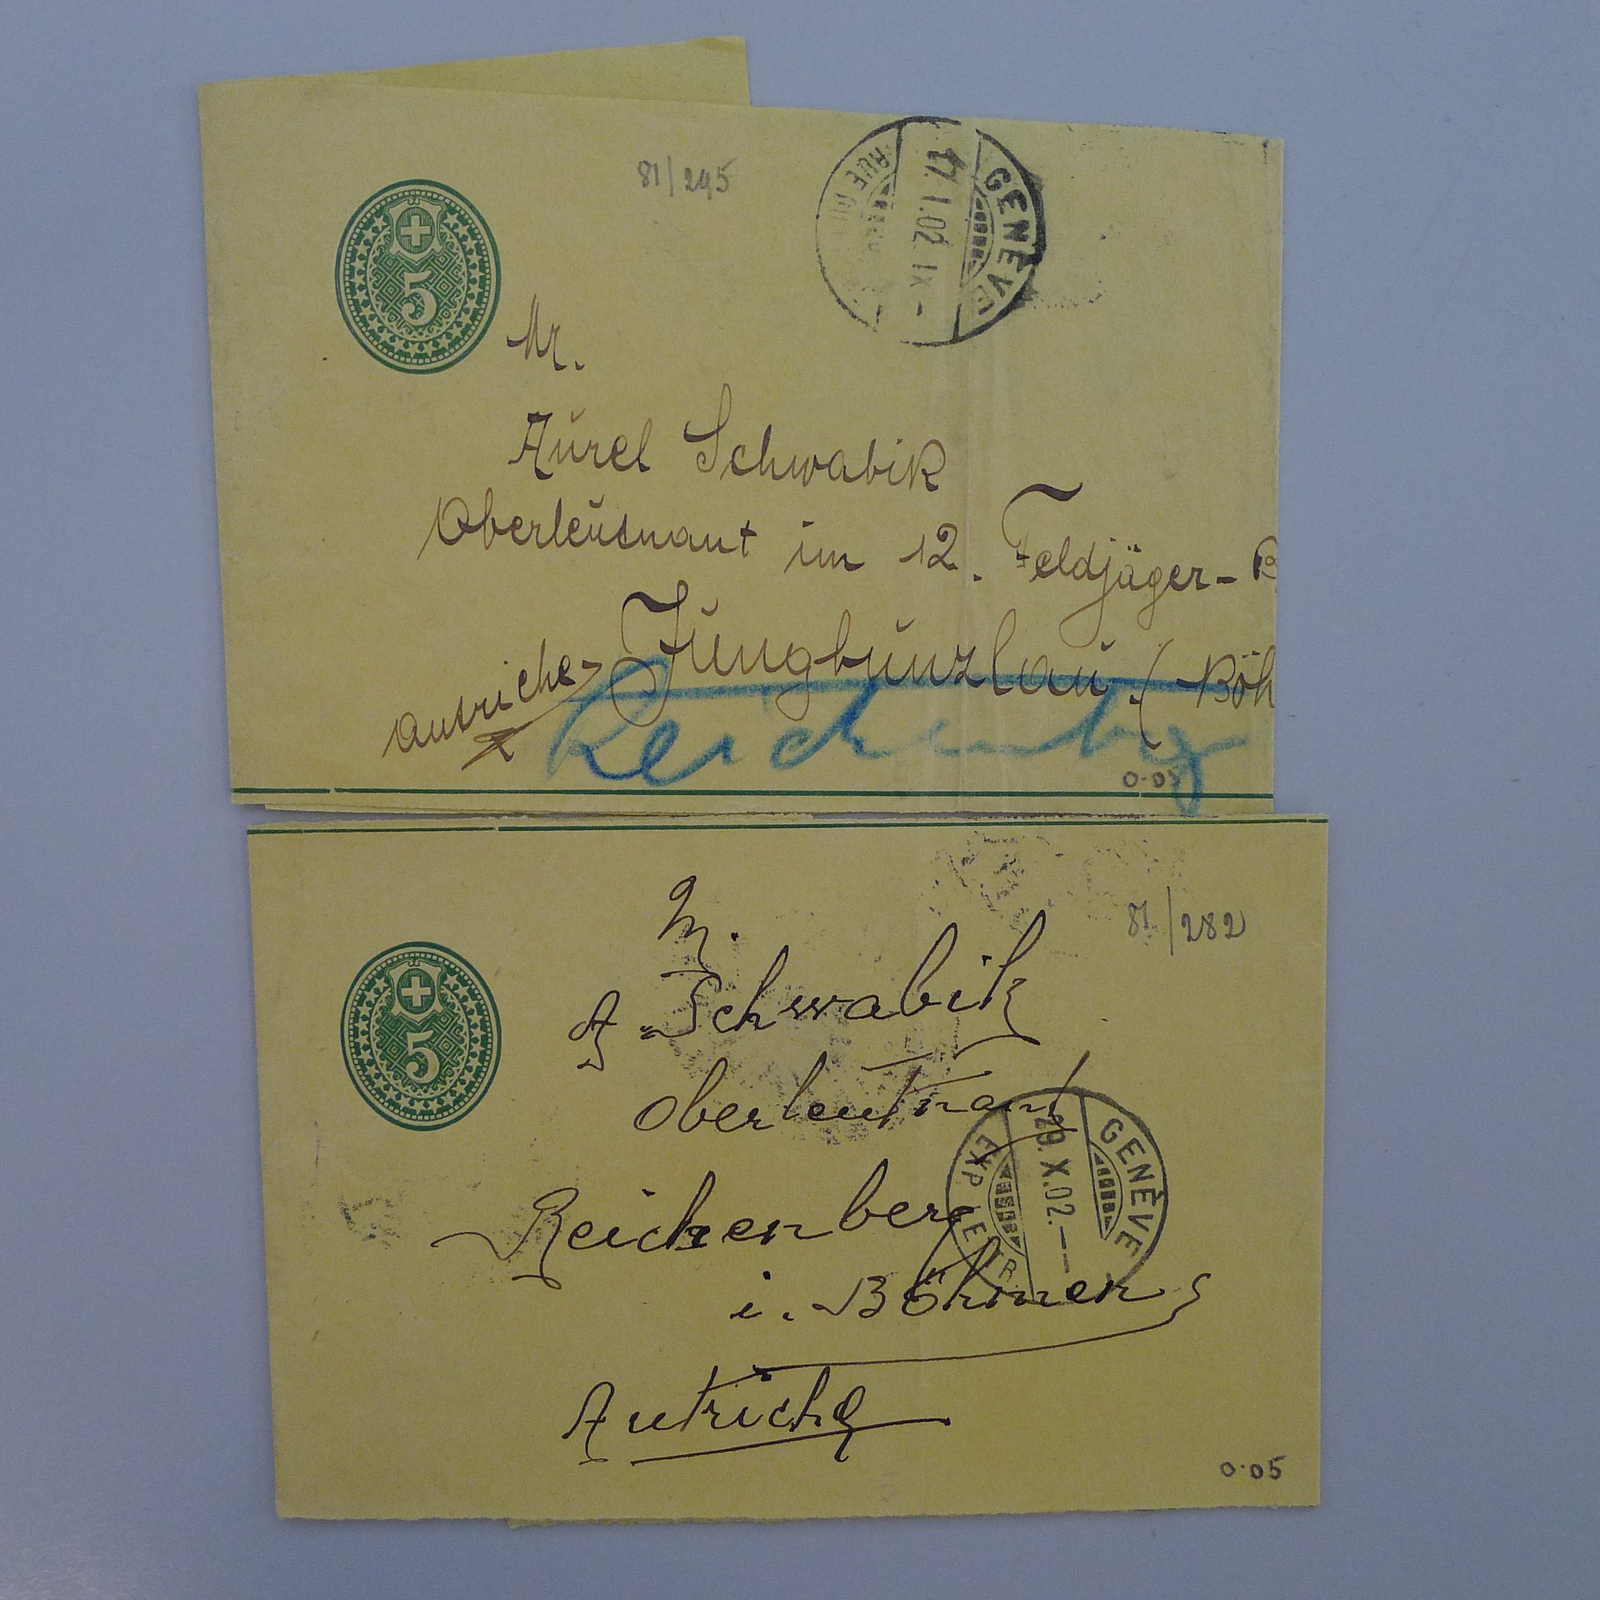 81/295
GENÈVE
17.1.02. IX -
RUE DU
5
Mr.
Aurel Schwabik
Oberleutnant im 12. Feldjäger- B
Jungbunzlau (Böh
Autriche
Reichenbg
0.05
81/282
5
M.
A. Schwabik
Oberleutnant
Reichenberg
i. Böhmen
Autriche
GENÈVE
29.X.02.--
EXP. LETTR.
0.05